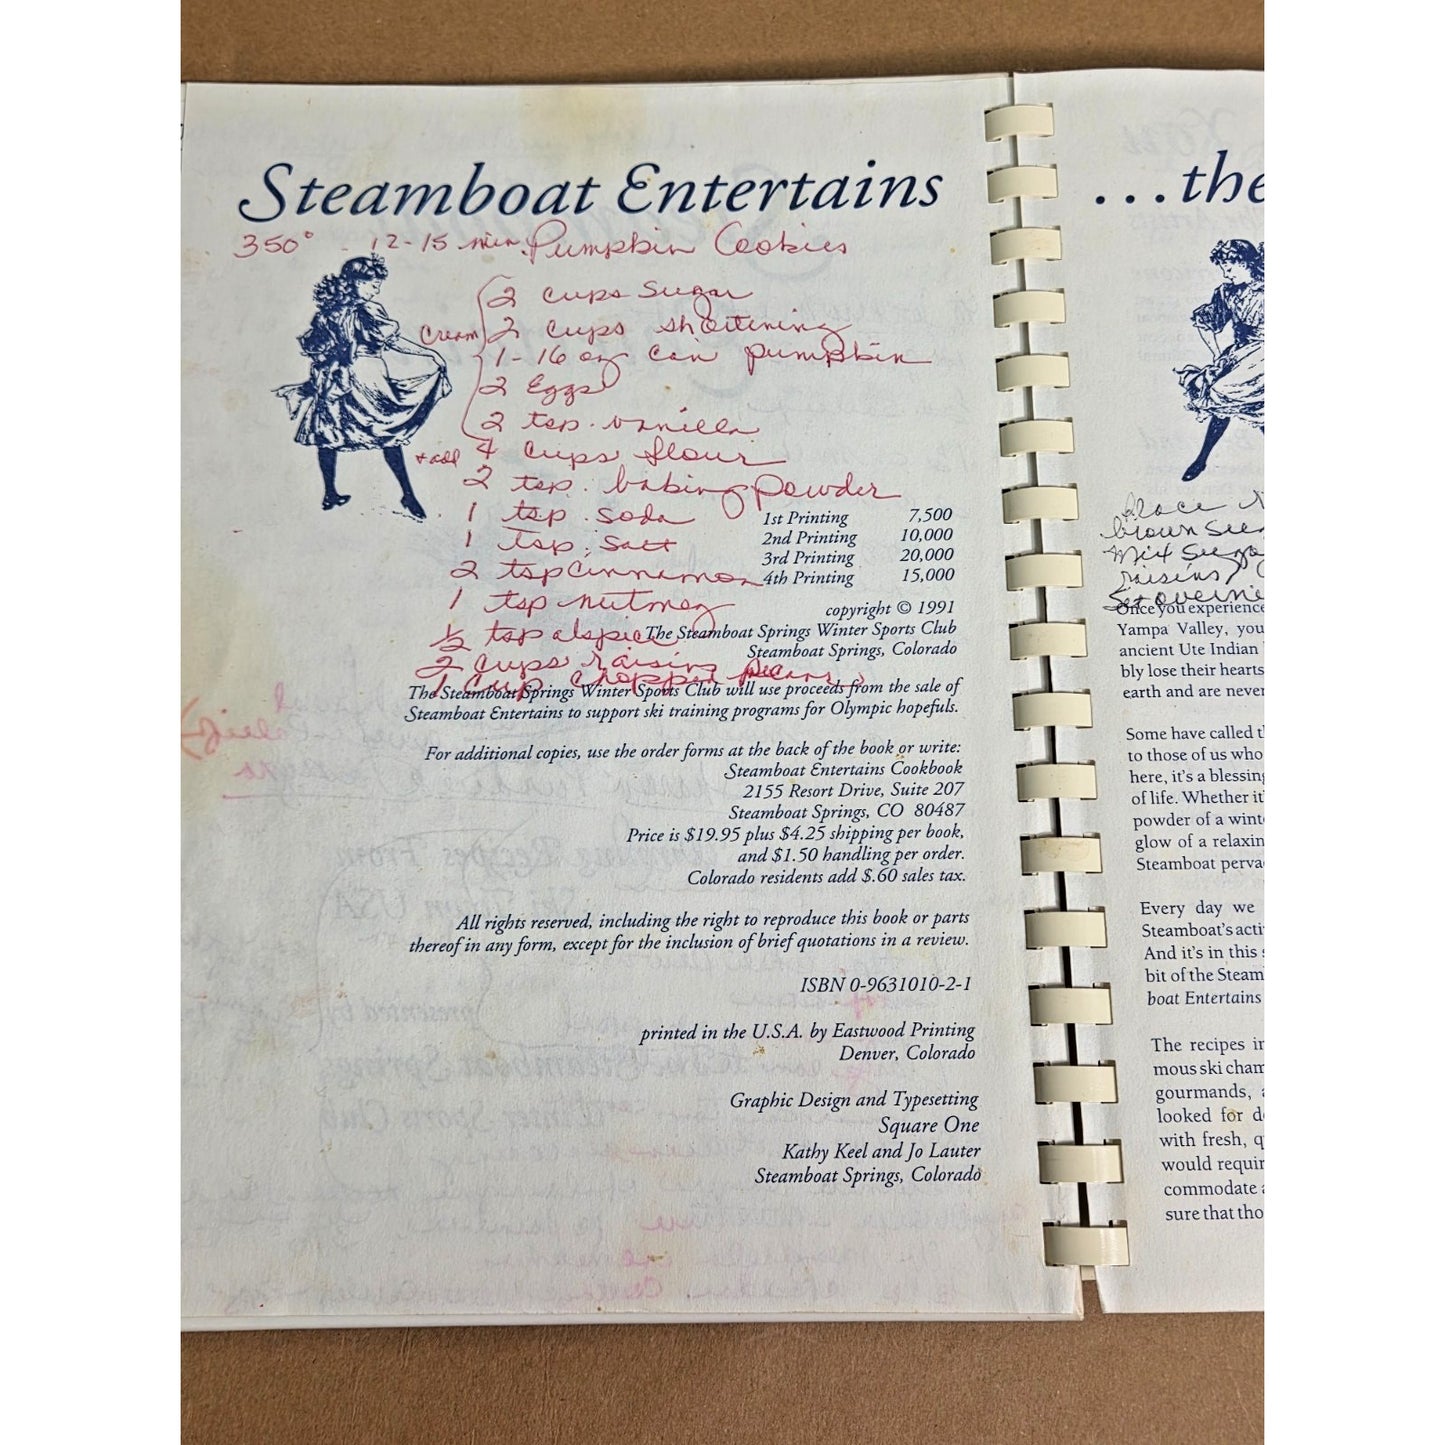 Steamboat Entertains
350° - 12-15 min. Pumpkin Cookies
2 cups sugar
Cream 2 cups shortening
1-16 oz can pumpkin
2 Eggs
2 tsp. vanilla
+ add 4 cups flour
2 tsp. baking powder
1 tsp. soda
1 tsp. salt
2 tsp cinnamon
1 tsp nutmeg
½ tsp alspice
2 cups raisins
1 cup chopped pecans
1st Printing 7,500
2nd Printing 10,000
3rd Printing 20,000
4th Printing 15,000
copyright © 1991
The Steamboat Springs Winter Sports Club
Steamboat Springs, Colorado
The Steamboat Springs Winter Sports Club will use proceeds from the sale of
Steamboat Entertains to support ski training programs for Olympic hopefuls.
For additional copies, use the order forms at the back of the book or write:
Steamboat Entertains Cookbook
2155 Resort Drive, Suite 207
Steamboat Springs, CO 80487
Price is $19.95 plus $4.25 shipping per book,
and $1.50 handling per order.
Colorado residents add $.60 sales tax.
All rights reserved, including the right to reproduce this book or parts
thereof in any form, except for the inclusion of brief quotations in a review.
ISBN 0-9631010-2-1
printed in the U.S.A. by Eastwood Printing
Denver, Colorado
Graphic Design and Typesetting
Square One
Kathy Keel and Jo Lauter
Steamboat Springs, Colorado
...the
brown
Mix
raisins
Once you experience
Yampa Valley, you
ancient Ute Indian
bly lose their hearts
earth and are never
Some have called
to those of us who
here, it's a blessing
of life. Whether it'
powder of a
glow of a
Steamboat
Every day we
Steamboat's
And it's in this
bit of the Steam
boat Entertains
The recipes
mous ski
gourmands,
looked for
with fresh,
would
commodate
sure that